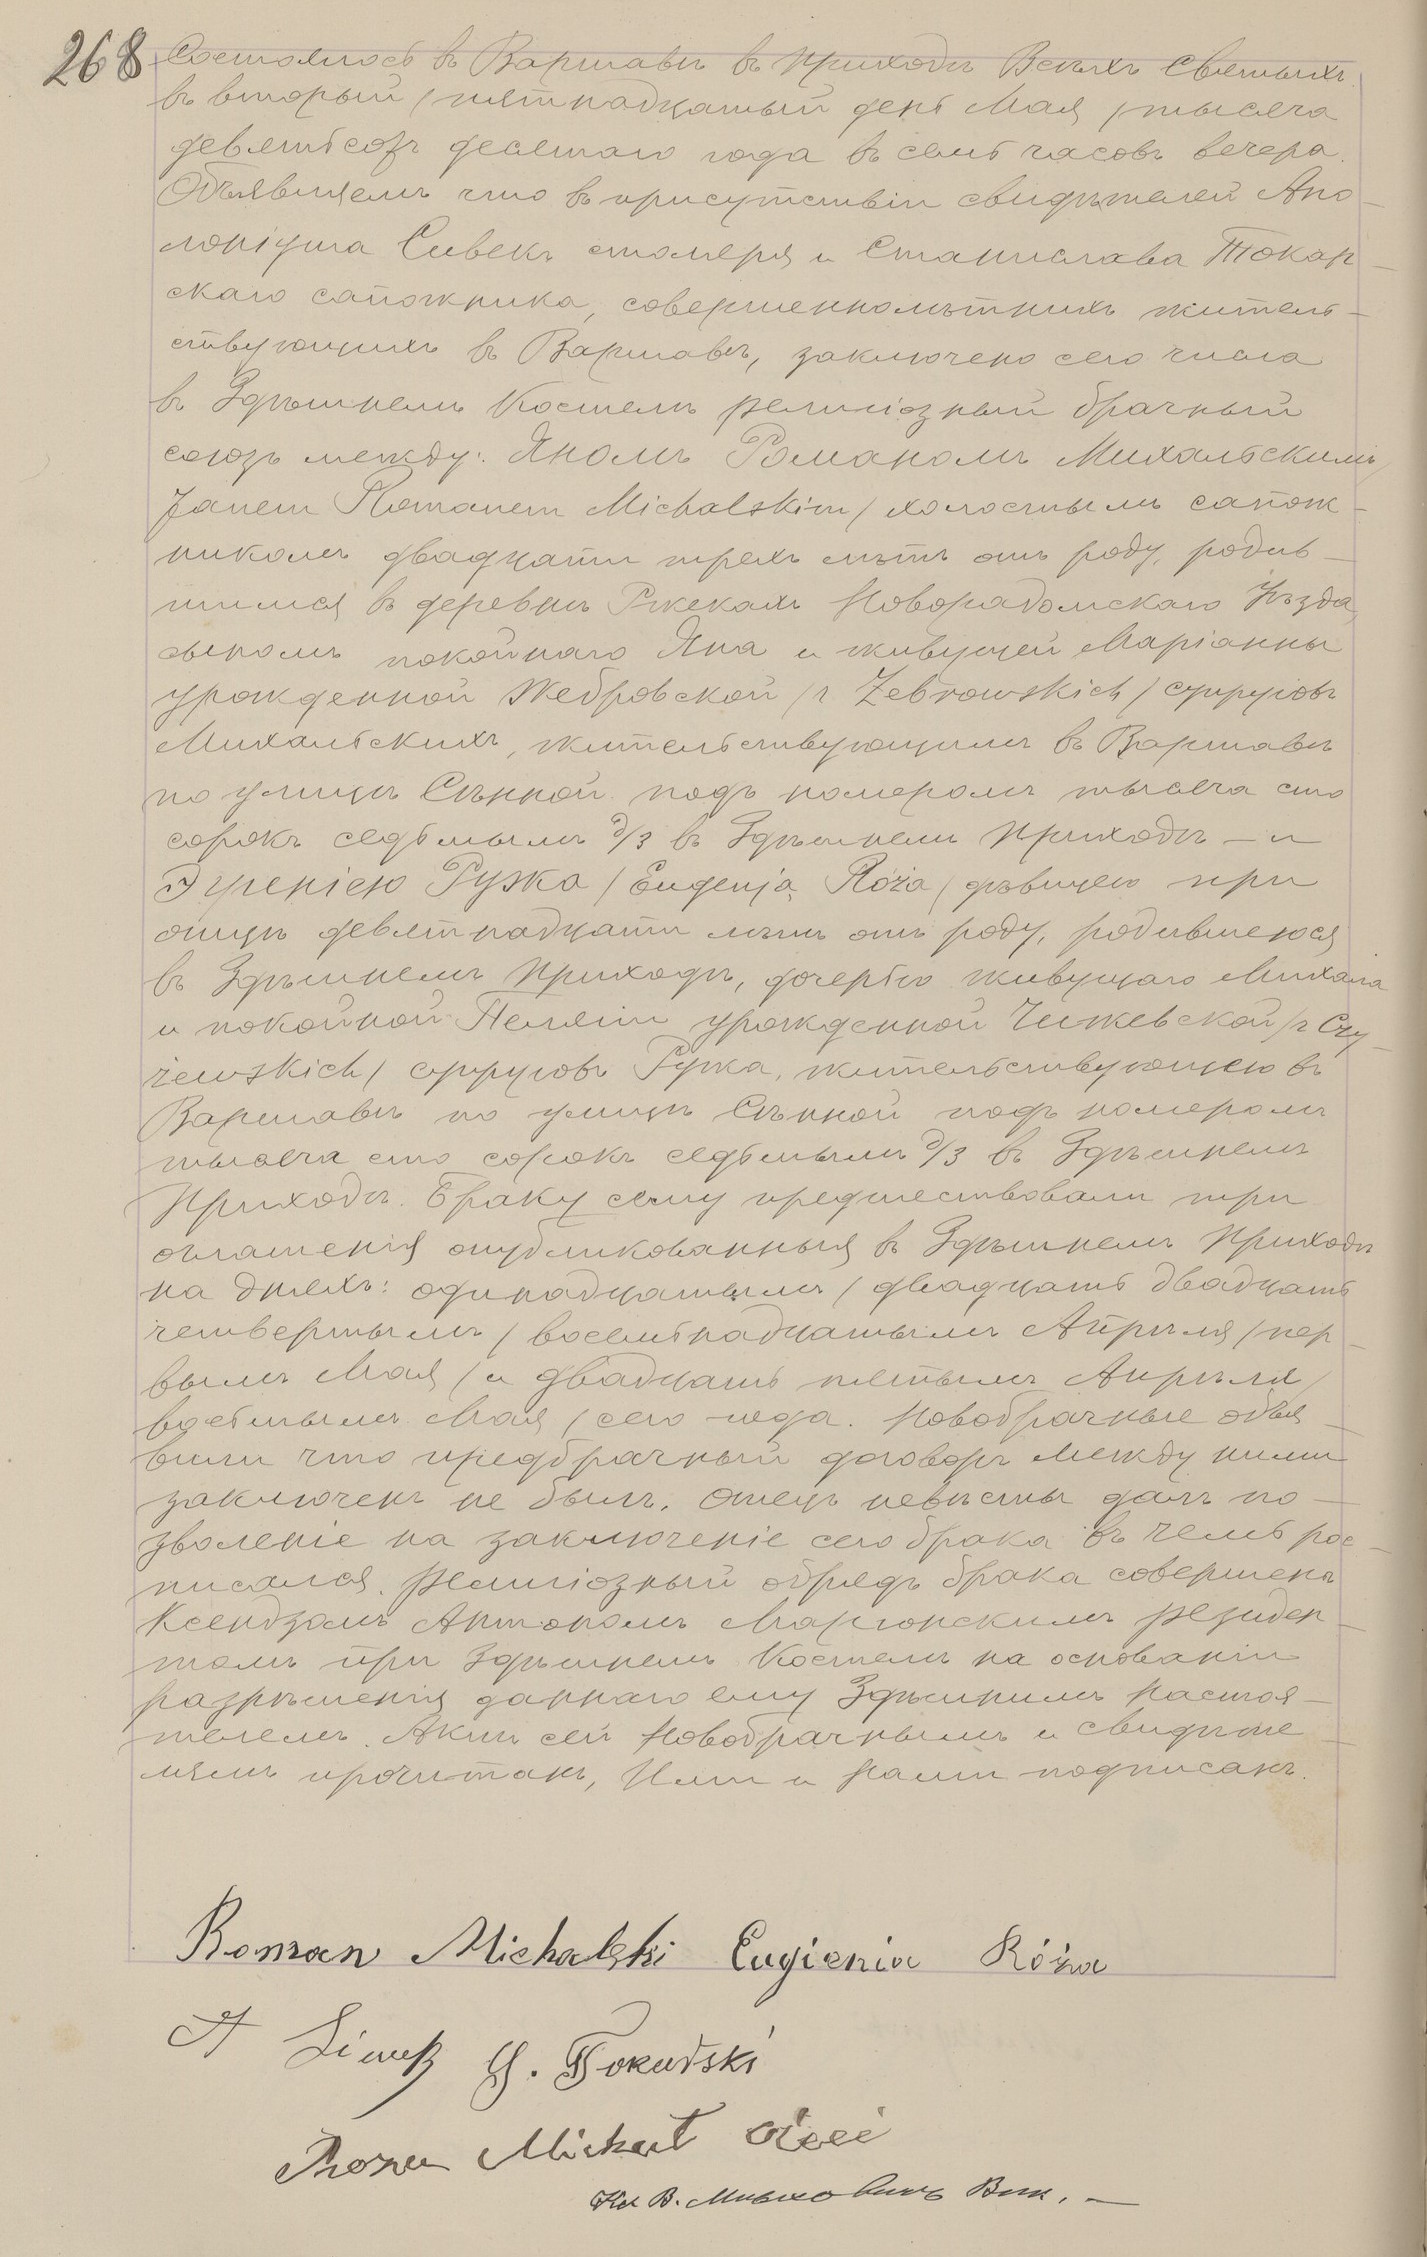 268 Состоялось въ Варшавѣ въ Приходѣ Всѣхъ Святыхъ
въ вторый / пятнадцатый день Мая / тысяча
девятьсотъ десятаго года въ семь часовъ вечера.
Объявляемъ что въ присутствіи свидѣтелей Апо-
лонiуша Сивекъ столяра и Станислава Токар-
скаго сапожника, совершеннолѣтнихъ житель-
ствующихъ въ Варшавѣ, заключено сего числа
въ Здѣшнемъ Костелѣ религіозный брачный
союзъ между: Яномъ Романомъ Михальскимъ /
Janem Romanem Michalskim / холостымъ сапож-
никомъ двадцати трехъ лѣтъ отъ роду, родив-
шимся въ деревнѣ Ржекахъ Новорадомскаго Уѣзда,
сыномъ покойнаго Яна и живущей Маріанны
урожденной Жебровской / z Żebrowskich / супруговъ
Михальскихъ, жительствующимъ въ Варшавѣ
по улицѣ Сѣнной подъ номеромъ тысяча сто
сорокъ седьмымъ д/з въ Здѣшнемъ Приходѣ — и
Эугеніею Рузка / Eugenją Róża / дѣвицею при
отцѣ девятнадцати лѣтъ отъ роду, родившеюся
въ Здѣшнемъ Приходѣ, дочерью живущаго Михала
и покойной Пелягіи урожденной Чижевской / z Czy-
żewskich / супруговъ Ружа, жительствующею въ
Варшавѣ по улицѣ Сѣнной подъ номеромъ
тысяча сто сорокъ седьмымъ д/з въ Здѣшнемъ
Приходѣ. Браку сему предшествовали три
оглашенія опубликованныя въ Здѣшнемъ Приходѣ
на дняхъ: одинадцатымъ / двадцать двадцать
четвертымъ / восемьнадцатымъ Апрѣля / пер-
вымъ Мая / и двадцать пятымъ Апрѣля /
восьмымъ Мая / сего года. Новобрачные объя-
вили что предбрачный договоръ между ними
заключенъ не былъ. Отецъ невѣсты далъ по-
зволеніе на заключеніе сего брака въ чемъ рос-
писался. Религіозный обрядъ брака совершенъ
Ксендзомъ Антономъ резиден-
томъ при Здѣшнемъ Костелѣ на основаніи
разрѣшенія даннаго ему Здѣшнимъ Настоя-
телемъ. Актъ сей Новобрачнымъ и свидѣте-
лямъ прочитанъ, Ими и Нами подписанъ.
Roman Michalski Eugienia Róża
A Siwek S. Tokarski
Roza Michał Ojciec
Кс В. Вик. —